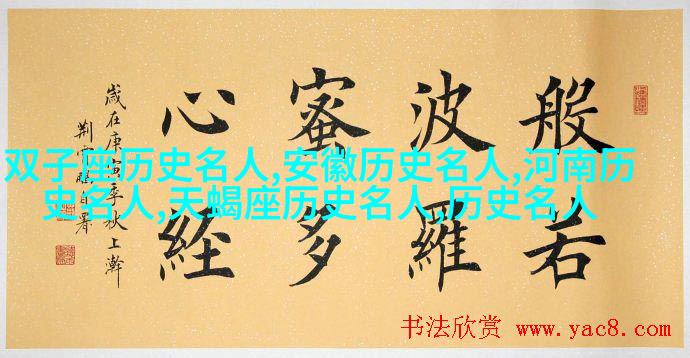 般若
波羅
蜜多
心経
歲在庚寅季秋上澣
荆霄鹏自署
双子座历史名人,安徽历史名人,河南历
史名人,天蝎座历史名人,历史名人
书法欣赏 www.yac8.com